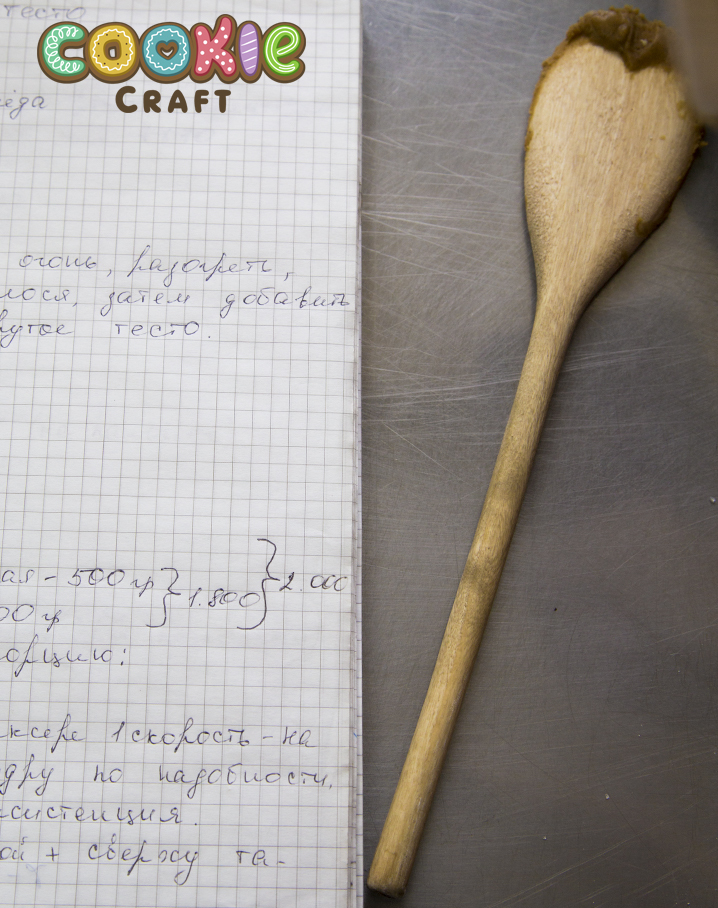 тесто
COOKIE
CRAFT
огонь, разогреть,
лося, затем добавить
нутое тесто.
ая - 500 гр } 1.800 } 2.000
00 гр
орцию:
ксере 1 скорость - на
дру по надобности.
систенция.
ой + сверху та-